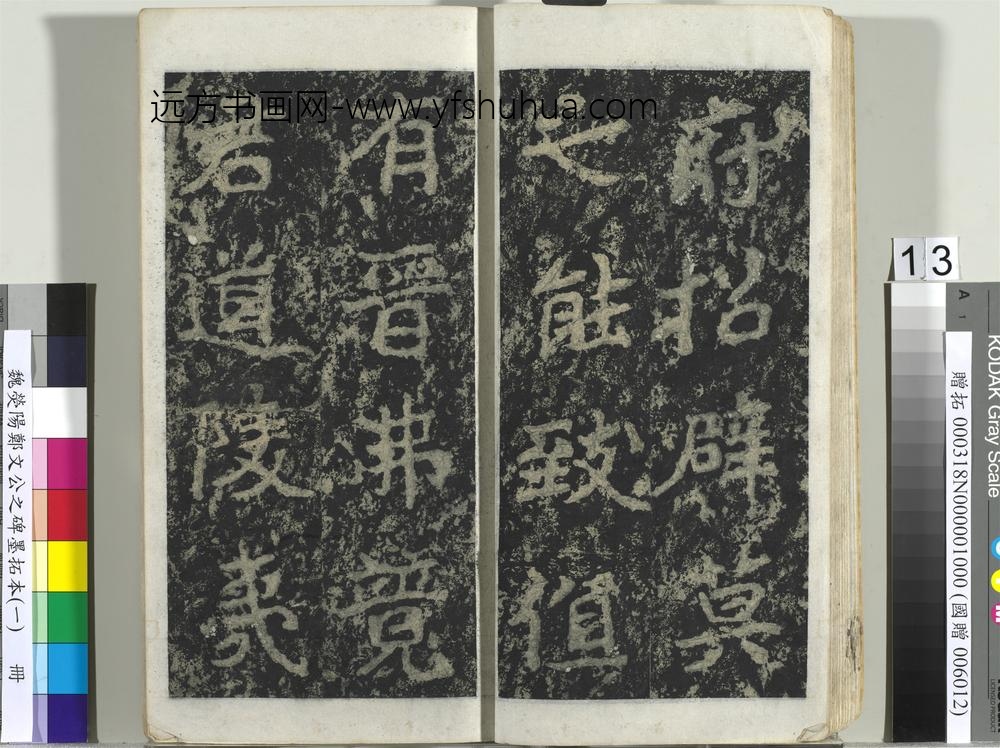 远方书画网-www.yfshuhua.com
府招辟莫
之能致值
有晉弗竞
君道陵夷
13
A 1
KODAK Gray Scale
魏滎陽鄭文公之碑墨拓本(一) 冊
贈拓 000318N000001000 (國贈 006012)